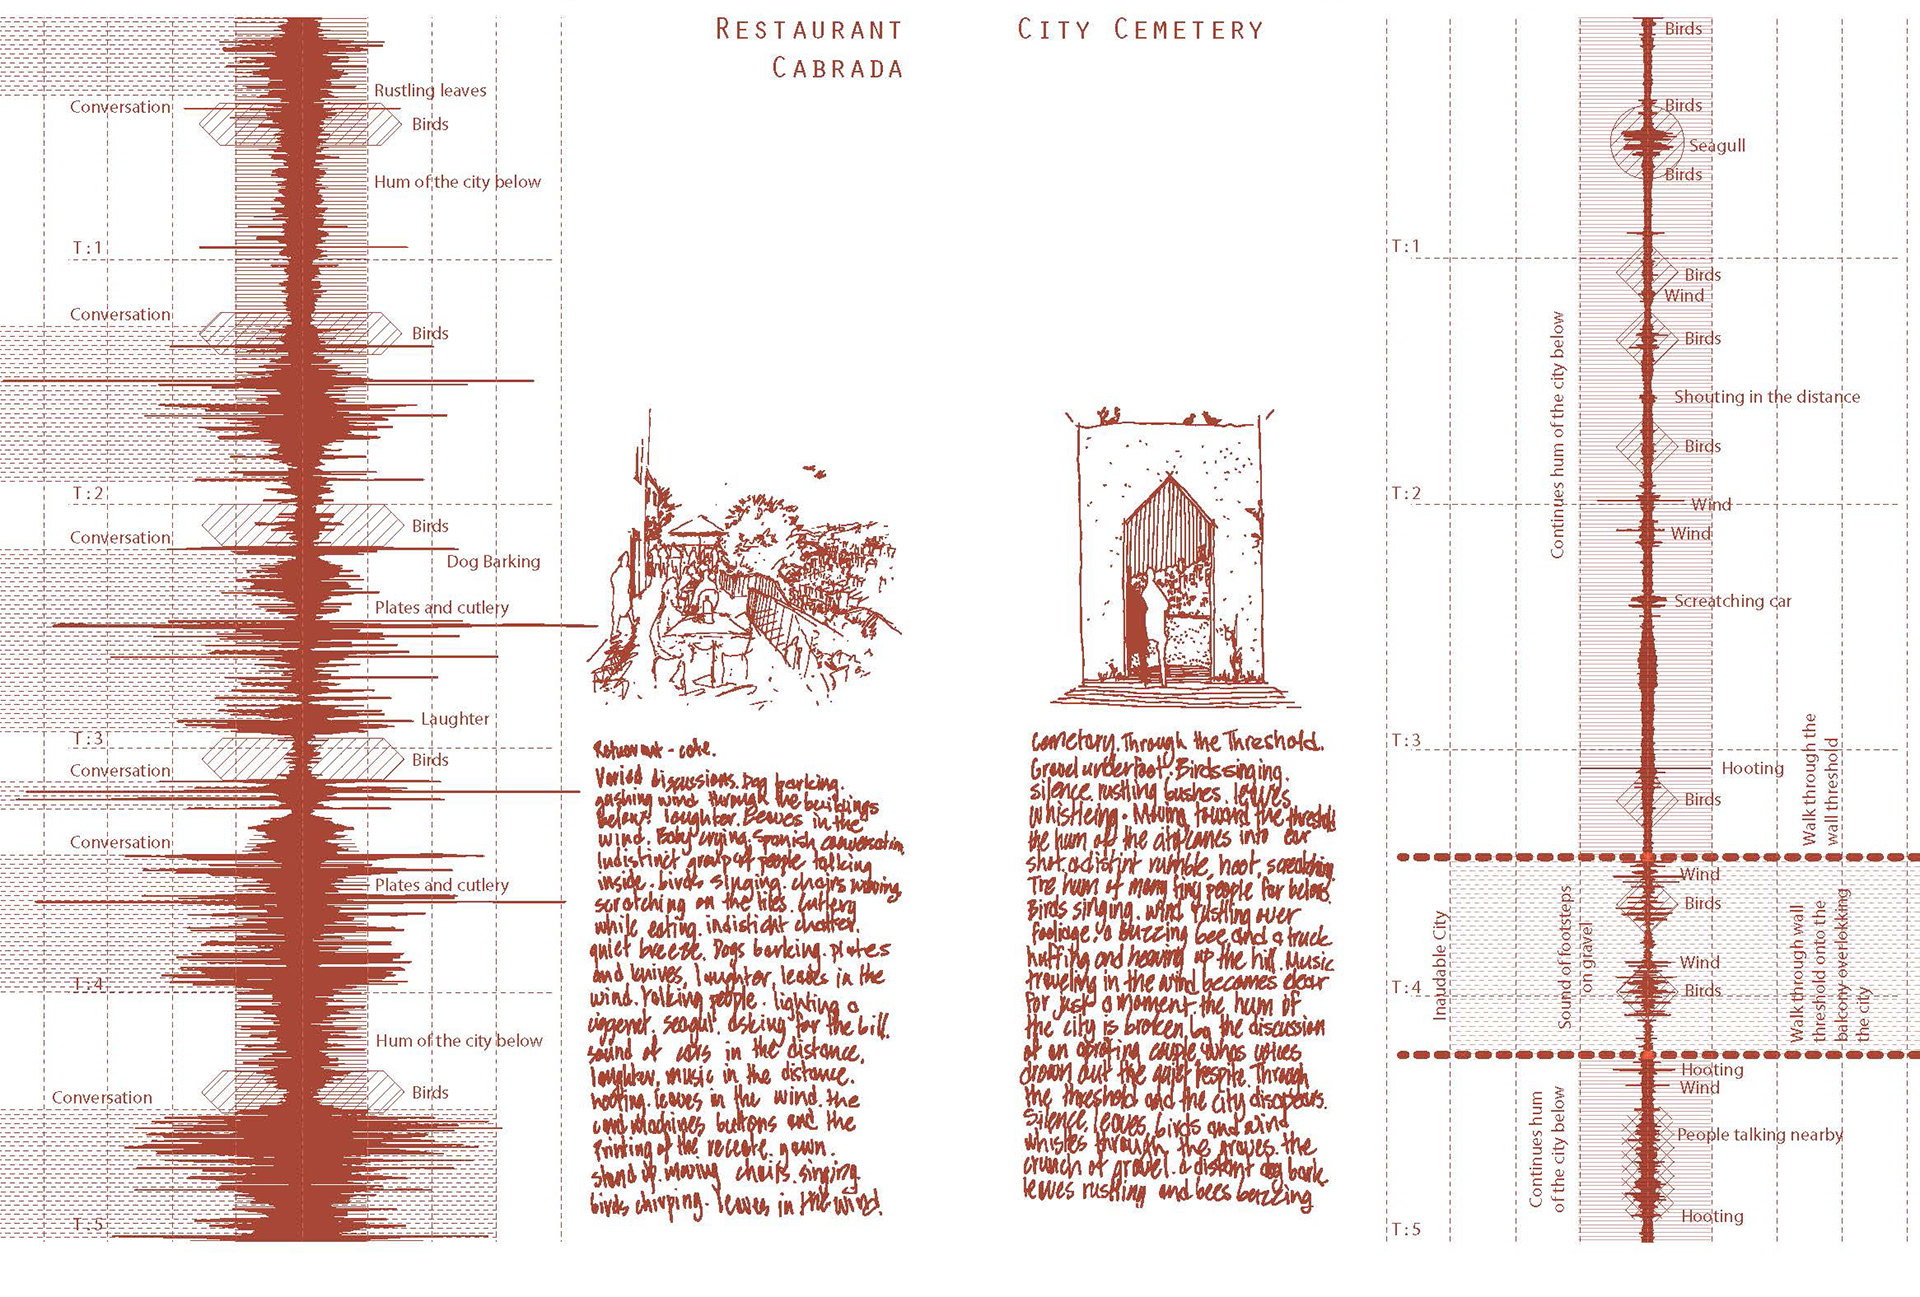 RESTAURANT
CABRADA
CITY CEMETERY
Rustling leaves
Conversation
Birds
Hum of the city below
T:1
Conversation
Birds
T:2
Birds
Conversation
Dog Barking
Plates and cutlery
Laughter
T:3
Birds
Conversation
Conversation
Plates and cutlery
T:4
Hum of the city below
Birds
Conversation
T:5
Varied discussions. Dog barking.
gushing wind through the buildings
below. laughter. Leaves in the
wind. Baby crying. Spanish conversation
Indistinct group of people talking
inside. birds singing. chairs moving
scratching on the tiles. Cutlery
while eating. indistinct chatter.
quiet breeze. Dogs barking. plates
and knives, laughter, leaves in the
wind. talking people. lighting a
seagul. asking for the bill.
sound of cars in the distance,
laughter, music in the distance.
hooting. leaves in the wind. the
card machines buttons and the
printing of the yawn.
stand up. moving chairs. singing
birds chirping. leaves in the wind.
Cemetery. Through the Threshold.
Gravel underfoot. Birds singing.
silence. rustling bushes. leaves
whistleing. Moving toward the threshold
the hum of the city comes into ear
shot. a distint rumble, hoot, screatching
The hum of many tiny people far below.
Birds singing. wind rustling over
fooliage. a buzzing bee and a truck
huffing and heaving up the hill. Music
traveling in the wind becomes clear
For just a moment. the hum of
the city is broken by the discussion
of an couple whos voices
drown out the quiet respite. Through
the threshold and the city disappears.
Silence, leaves, birds and wind
whistles through the graves. the
crunch of gravel. a distant dog bark
leaves rustling and bees buzzing
Birds
Birds
Seagull
Birds
T:1
Birds
Wind
Birds
Continues hum of the city below
Shouting in the distance
Birds
T:2
Wind
Wind
Screatching car
T:3
Hooting
Birds
Walk through the
wall threshold
Wind
Birds
Inaudable City
Sound of footsteps
on gravel
Wind
Birds
T:4
Walk through wall
threshold onto the
balcony overlokking
the city
Hooting
Wind
Continues hum
of the city below
People talking nearby
Hooting
T:5